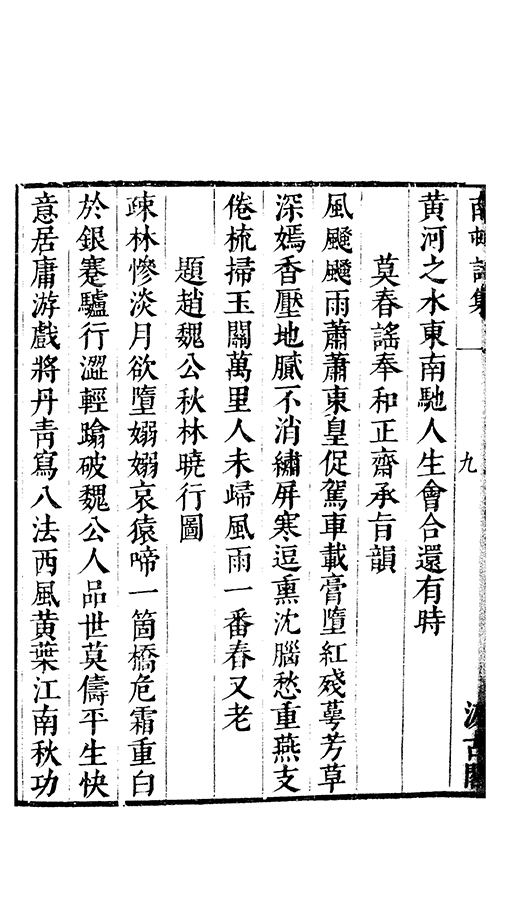 集一
九
黄河之水東南馳人生會合還有時
莫春謠奉和正齋承旨韻
風颼颼雨蕭蕭東皇促駕車載膏墮紅殘萼芳草
深嫣香壓地膩不消繡屏寒逗熏沈腦愁重燕支
倦梳掃玉關萬里人未歸風雨一番春又老
題趙魏公秋林曉行圖
疎林慘淡月欲墮嫋嫋哀猿啼一箇橋危霜重白
於銀蹇驢行澀輕踰破魏公人品世莫儔平生快
意居庸游戲將丹青寫八法西風黃葉江南秋功